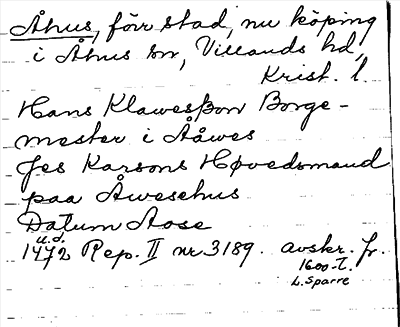 Åhus, förr stad, nu köping
i Åhus sn, Villands hd,
Krist. l.
Hans Klawesßon Borge-
mester i Ååwes
Jes Karsons Høvedsmand
paa Åwesehus
Datum Aose
u.d.
1472 Rep. II nr 3189. avskr. fr.
1600-t.
L. Sparre